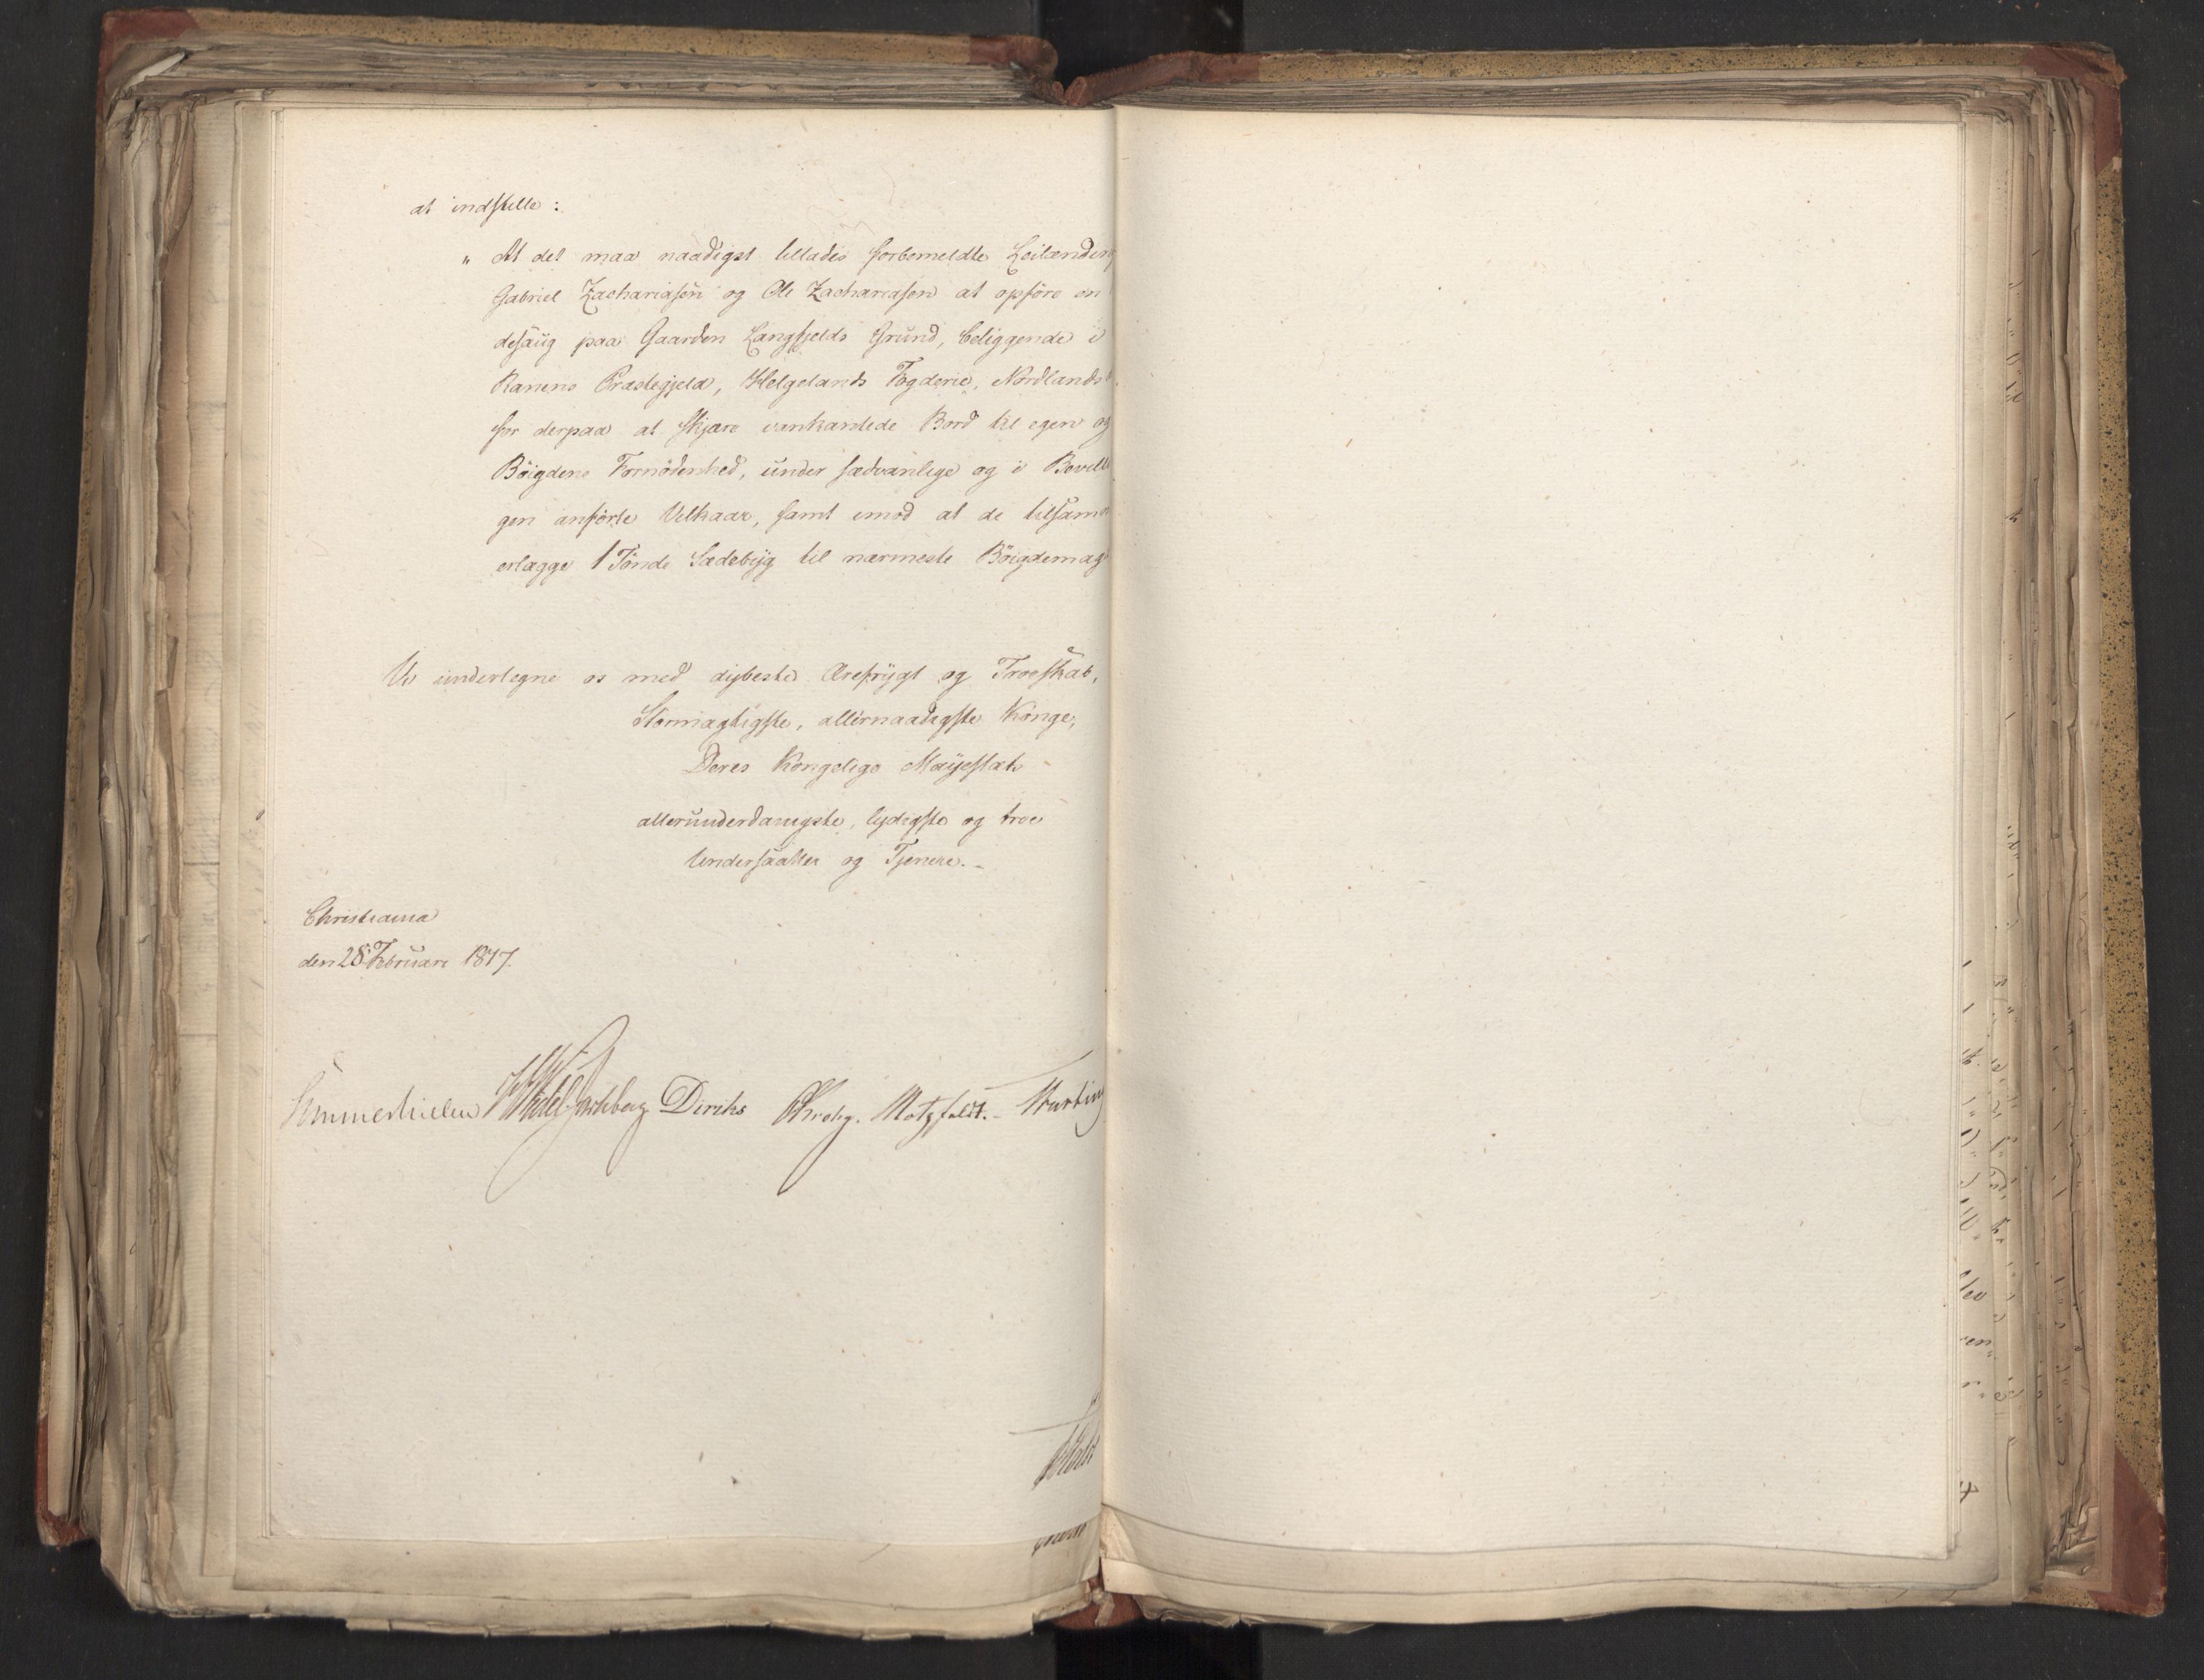 at indstille:
" At det maa naadigst tillades forbemeldte Leilænding
Gabriel Zachariasen og Ole Zachariasen at opføre en
desaug paa Gaarden Langfjelds Grund, beliggende i
Ranens Præstegjeld, Helgelands Fogderie, Nordlands
for derpaa at skjære vankantede Bord til egen og
Böigdens Fornödenhed, under sædvanlige og i Bevill
gen anförte Vilkaar, samt imod at de tilsam
erlægge 1 Tönde Sædebyg til nærmeste Böigdemag
Vi undertegne os med dybeste Ærefrygt og Troeskab,
Stormægtigste, allernaadigste Konge,
Deres Kongelige Mayestæts
allerunderdanigste, lydigste og troe
Undersaatter og Tjenere.-
Christiania
den 28 Februari 1817.
Sommerhielm Wedel Jarlsberg Diriks Chrohg. Motzfeldt. Hwcting